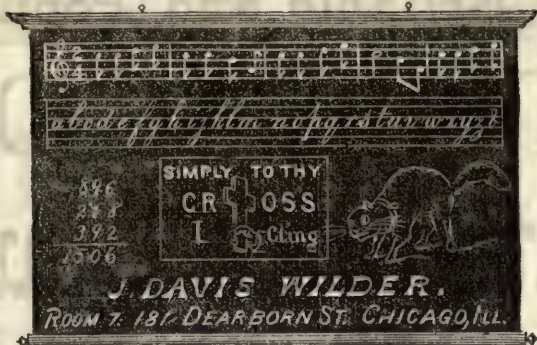 abcdefghijklm nopqrstuvwxyz
896
218
392
1506
SIMPLY TO THY
CROSS
I Cling
J. DAVIS WILDER.
ROOM 7. 181 DEARBORN ST. CHICAGO, ILL.